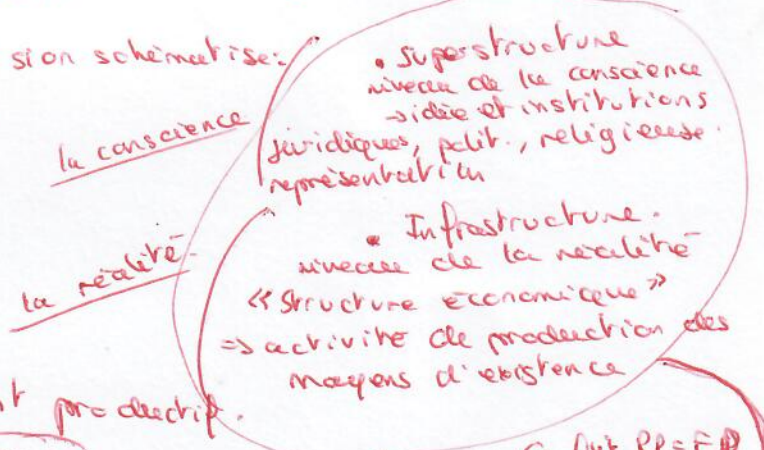 si on schématise:
• Superstructure
niveau de la conscience
→ idée et institutions
la conscience
juridiques, polit., religieuse
représentation
• Infrastructure.
niveau de la réalité
la réalité
« Structure économique »
=> activité de production des
moyens d'existence
productif.